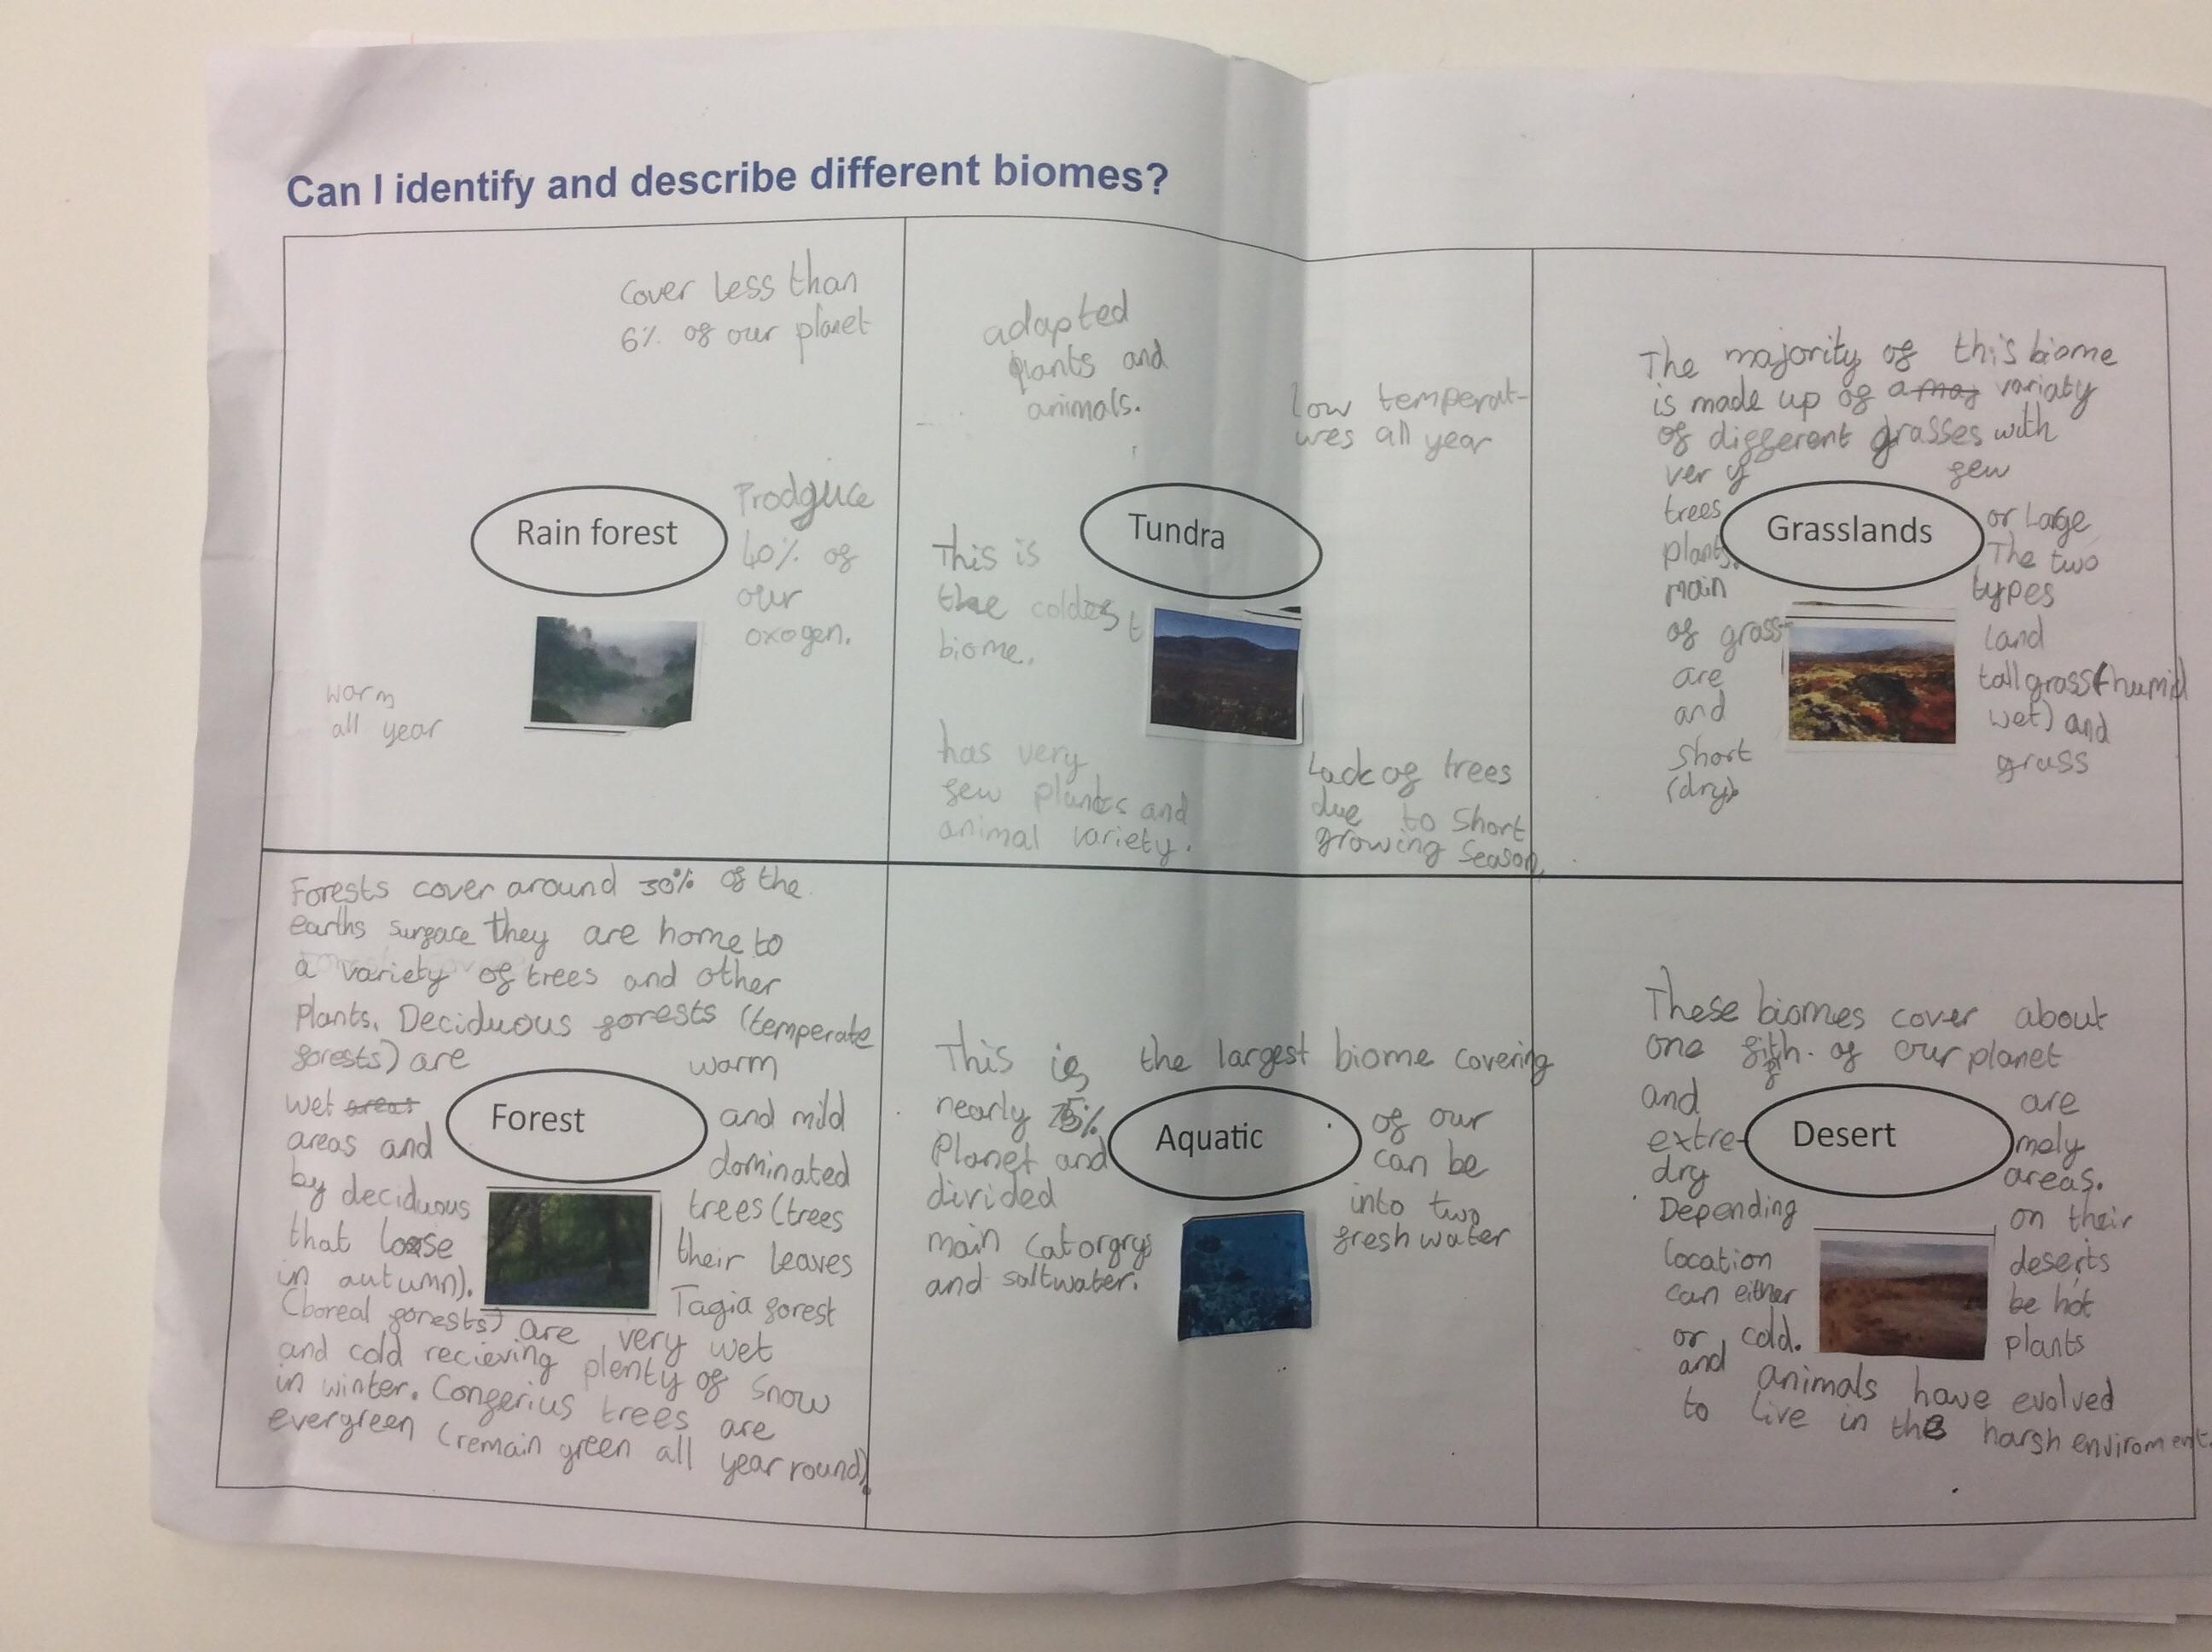 Can I identify and describe different biomes?
Cover less than
6% of our planet
Rain forest
Prodguce
40% of
our
oxogen.
warm
all year
adapted
plants and
animals.
low temperat-
ures all year
Tundra
This is
the coldest
biome.
has very
few plants and
animal variety.
Lack of trees
due to short
growing season.
The majority of this biome
is made up of a maj variaty
of different grasses with
very few
trees or Large
Grasslands
plants. The two
main types
of grass- land
are tall grass (humid
and wet) and
short grass
(dry)
Forests cover around 30% of the
earths surface they are home to
a variety of trees and other
Plants. Deciduous forests (temperate
forests) are warm
wet areas and mild
Forest
areas and dominated
by deciduous trees (trees
that loose their leaves
in autumn). Tagia forest
(boreal forests) are very wet
and cold recieving plenty of snow
in winter. Conferius trees are
evergreen (remain green all year round).
This is the largest biome covering
nearly 75% of our
Aquatic
Planet and can be
divided into two
main Catorgrys freshwater
and saltwater.
These biomes cover about
one fifth. of our planet
and are
Desert
extre- mely
dry areas.
Depending on their
location deserts
can either be hot
or cold. plants
and animals have evolved
to live in the harsh enviroment.